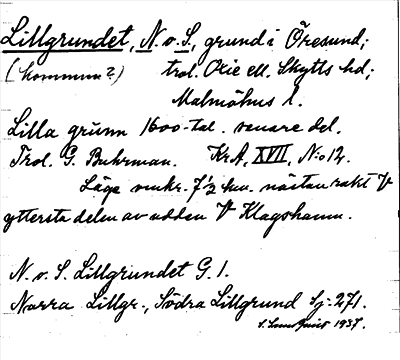 Lillgrundet, N. o. S., grund i Öresund;
(kommun?) trol. Oxie ell. Skytts hd;
Malmöhus l.
Lilla grünn 1600-tal. senare del.
Trol. G. Buhrman. Kr.A, XVII, N:o 12.
Läge omkr. 7 1/2 km. nästan rakt V
yttersta delen av udden V Klagshamn.
N. o. S. Lillgrundet G. 1.
Norra Lillgr., Södra Lillgrund Sj. 271.
1937.